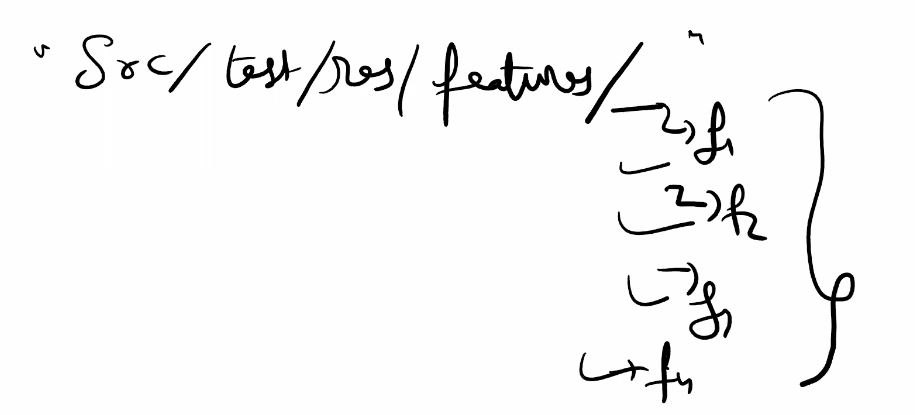 "Src/test/res/features/"
f1
f2
f3
f4